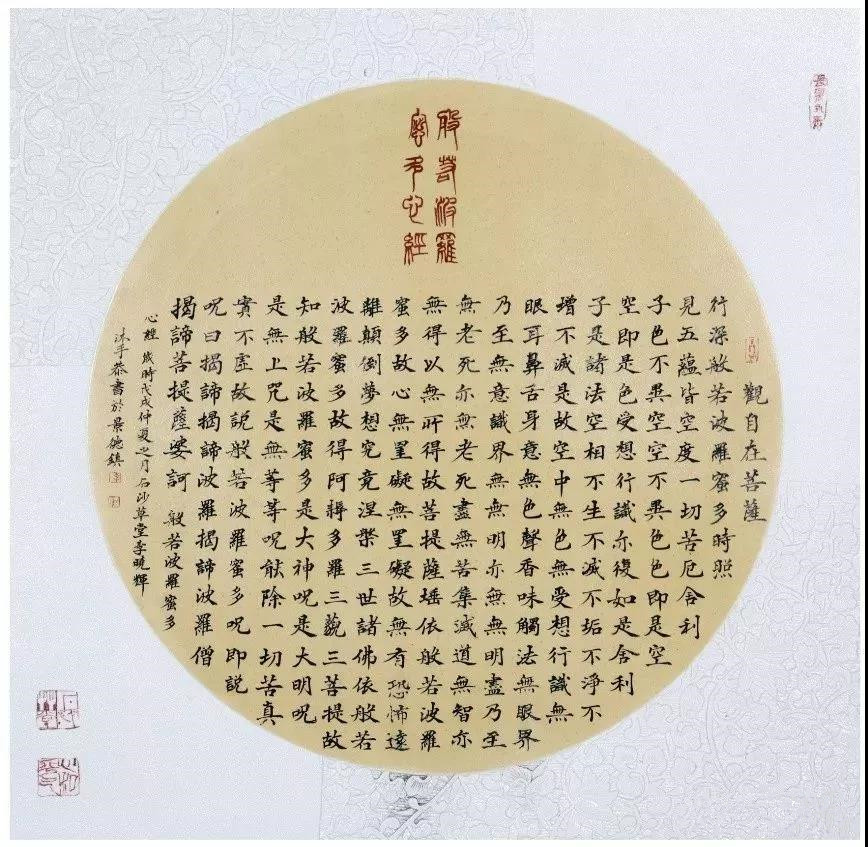 般若波羅
蜜多心經
觀自在菩薩
行深般若波羅蜜多時照
見五蘊皆空度一切苦厄舍利
子色不異空空不異色色即是空
空即是色受想行識亦復如是舍利
子是諸法空相不生不滅不垢不淨不
增不減是故空中無色無受想行識無
眼耳鼻舌身意無色聲香味觸法無眼界
乃至無意識界無無明亦無無明盡乃至
無老死亦無老死盡無苦集滅道無智亦
無得以無所得故菩提薩埵依般若波羅
蜜多故心無罣礙無罣礙故無有恐怖遠
離顛倒夢想究竟涅槃三世諸佛依般若
波羅蜜多故得阿耨多羅三藐三菩提故
知般若波羅蜜多是大神呪是大明呪
是無上咒是無等等呪能除一切苦真
實不虛故說般若波羅蜜多呪即說
呪曰揭諦揭諦波羅揭諦波羅僧
揭諦菩提薩婆訶 般若波羅蜜多
心經 歲時戊戌仲夏之月石沙草堂李曉輝
沐手恭書於景德鎮